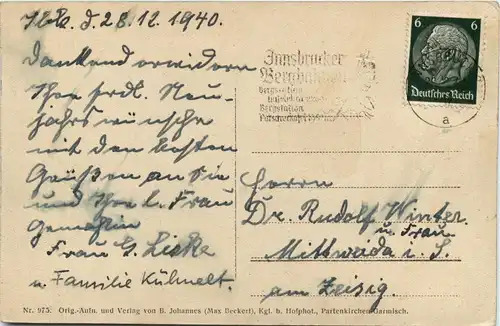 d. 28.12.1940.
Dankend erwidern
Ihre frdl. Neu-
jahrswünsche
mit den besten
Grüßen an Sie
und Ihre l. Frau
Gemahlin
Frau G. Liske
u. Familie Kühnelt.
Innsbrucker
6 6
Deutsches Reich
a
Herrn
Dr. Rudolf Winter
u. Frau
Mittweida i. S.
am Zeisig.
Nr. 975. Orig.-Aufn. und Verlag von B. Johannes (Max Beckert), Kgl. b. Hofphot., Partenkirchen-Garmisch.